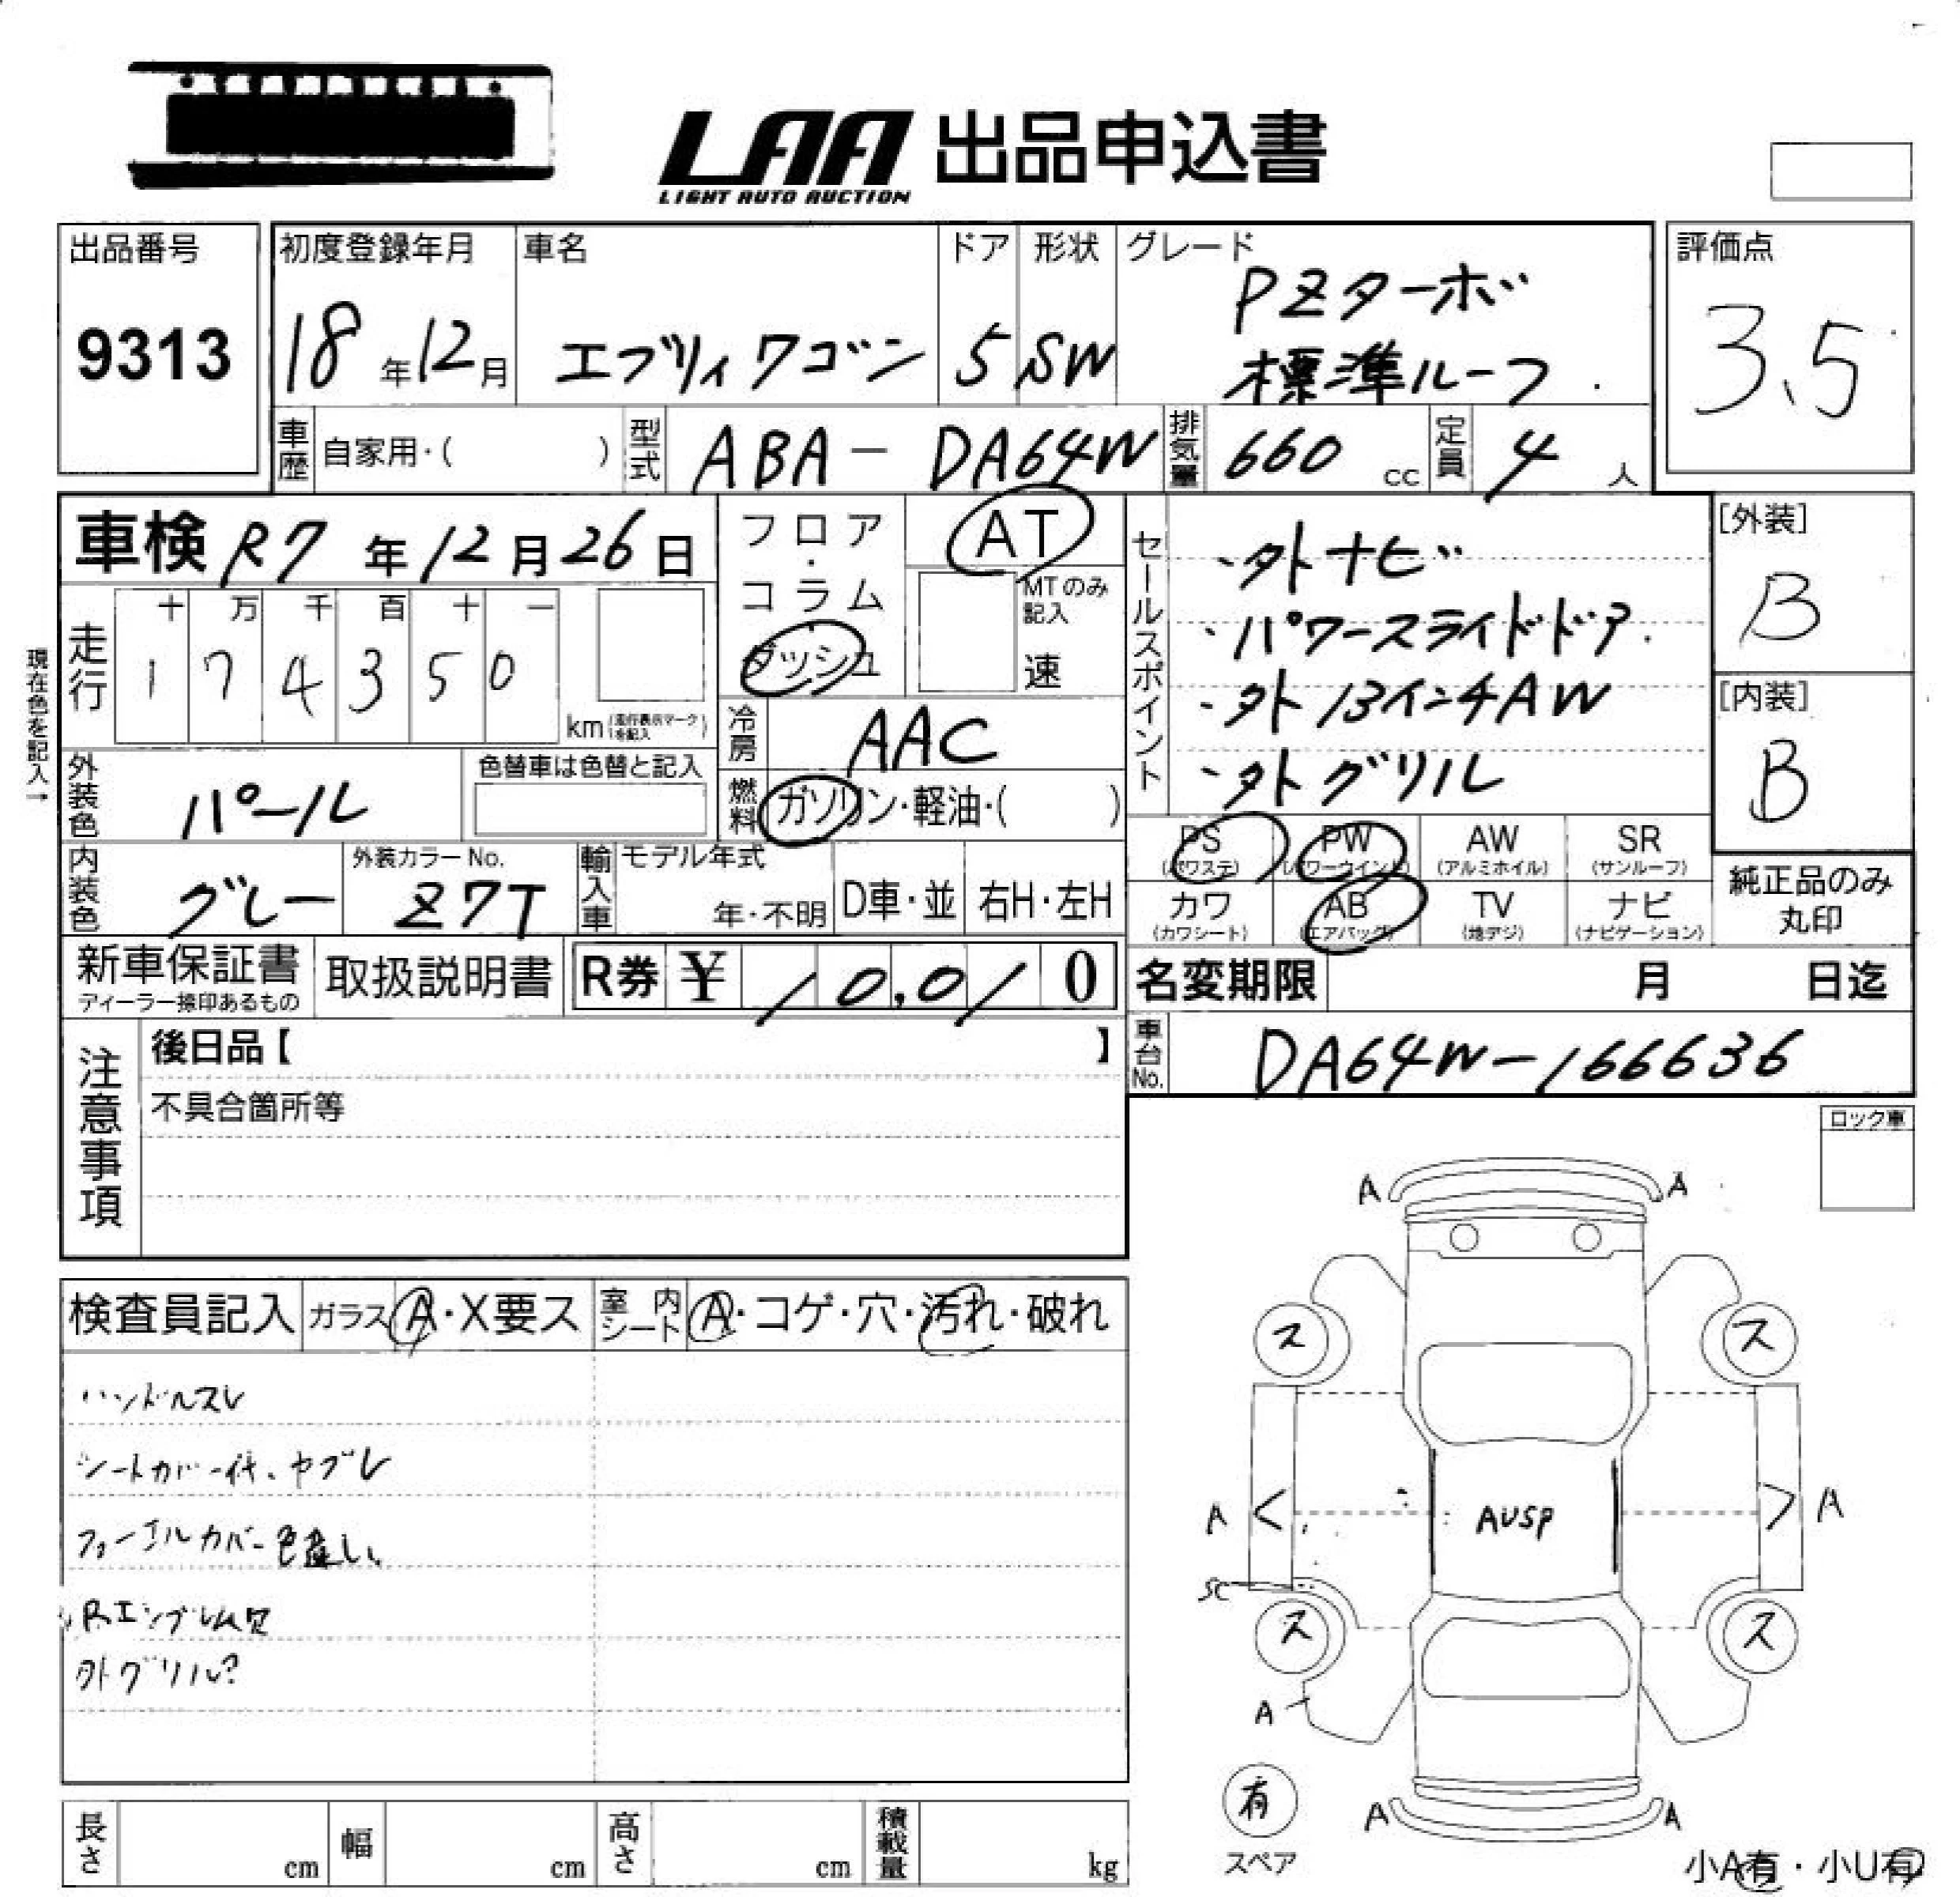 LAA 出品申込書
LIGHT AUTO AUCTION
出品番号 初度登録年月 車名 ドア 形状 グレード 評価点
9313 18年12月 エブリィワゴン 5 SW PZターボ 3.5
標準ルーフ
車歴 自家用・( ) 型式 ABA-DA64W 排気量 660 cc 定員 4 人
車検 R7年12月26日 フロア・コラム ダッシュ AT MTのみ記入 速
現在色を記入→
走行 十 万 千 百 十 一
1 7 4 3 5 0
km (走行表示マークを記入)
外装色 パール 色替車は色替と記入
冷房 AAC
燃料 ガソリン・軽油・( )
セールスポイント
・外ナビ
・パワースライドドア
・外13インチAW
・外グリル
[外装]
B
[内装]
B
内装色 グレー 外装カラーNo. Z7T 輸入車 モデル年式 年・不明 D車・並 右H・左H
PS (パワステ) PW (パワーウインド) AW (アルミホイル) SR (サンルーフ)
カワ (カワシート) AB (エアバック) TV (地デジ) ナビ (ナビゲーション)
純正品のみ
丸印
新車保証書 ディーラー捺印あるもの 取扱説明書 R券 ¥ 10,010
名変期限 月 日迄
車台No. DA64W-166636
注意事項
後日品【 】
不具合箇所等
ロック車
検査員記入 ガラス A・X要ス 室内シート A・コゲ・穴・汚れ・破れ
ハンドルスレ
シートカバー付、ヤブレ
フューエルカバー色違い
Rエンブレム欠
外グリル?
A A
ス ス
A A
AUSP
SC
ス ス
A
有
スペア
A A
小A有・小U有
長さ cm 幅 cm 高さ cm 積載量 kg